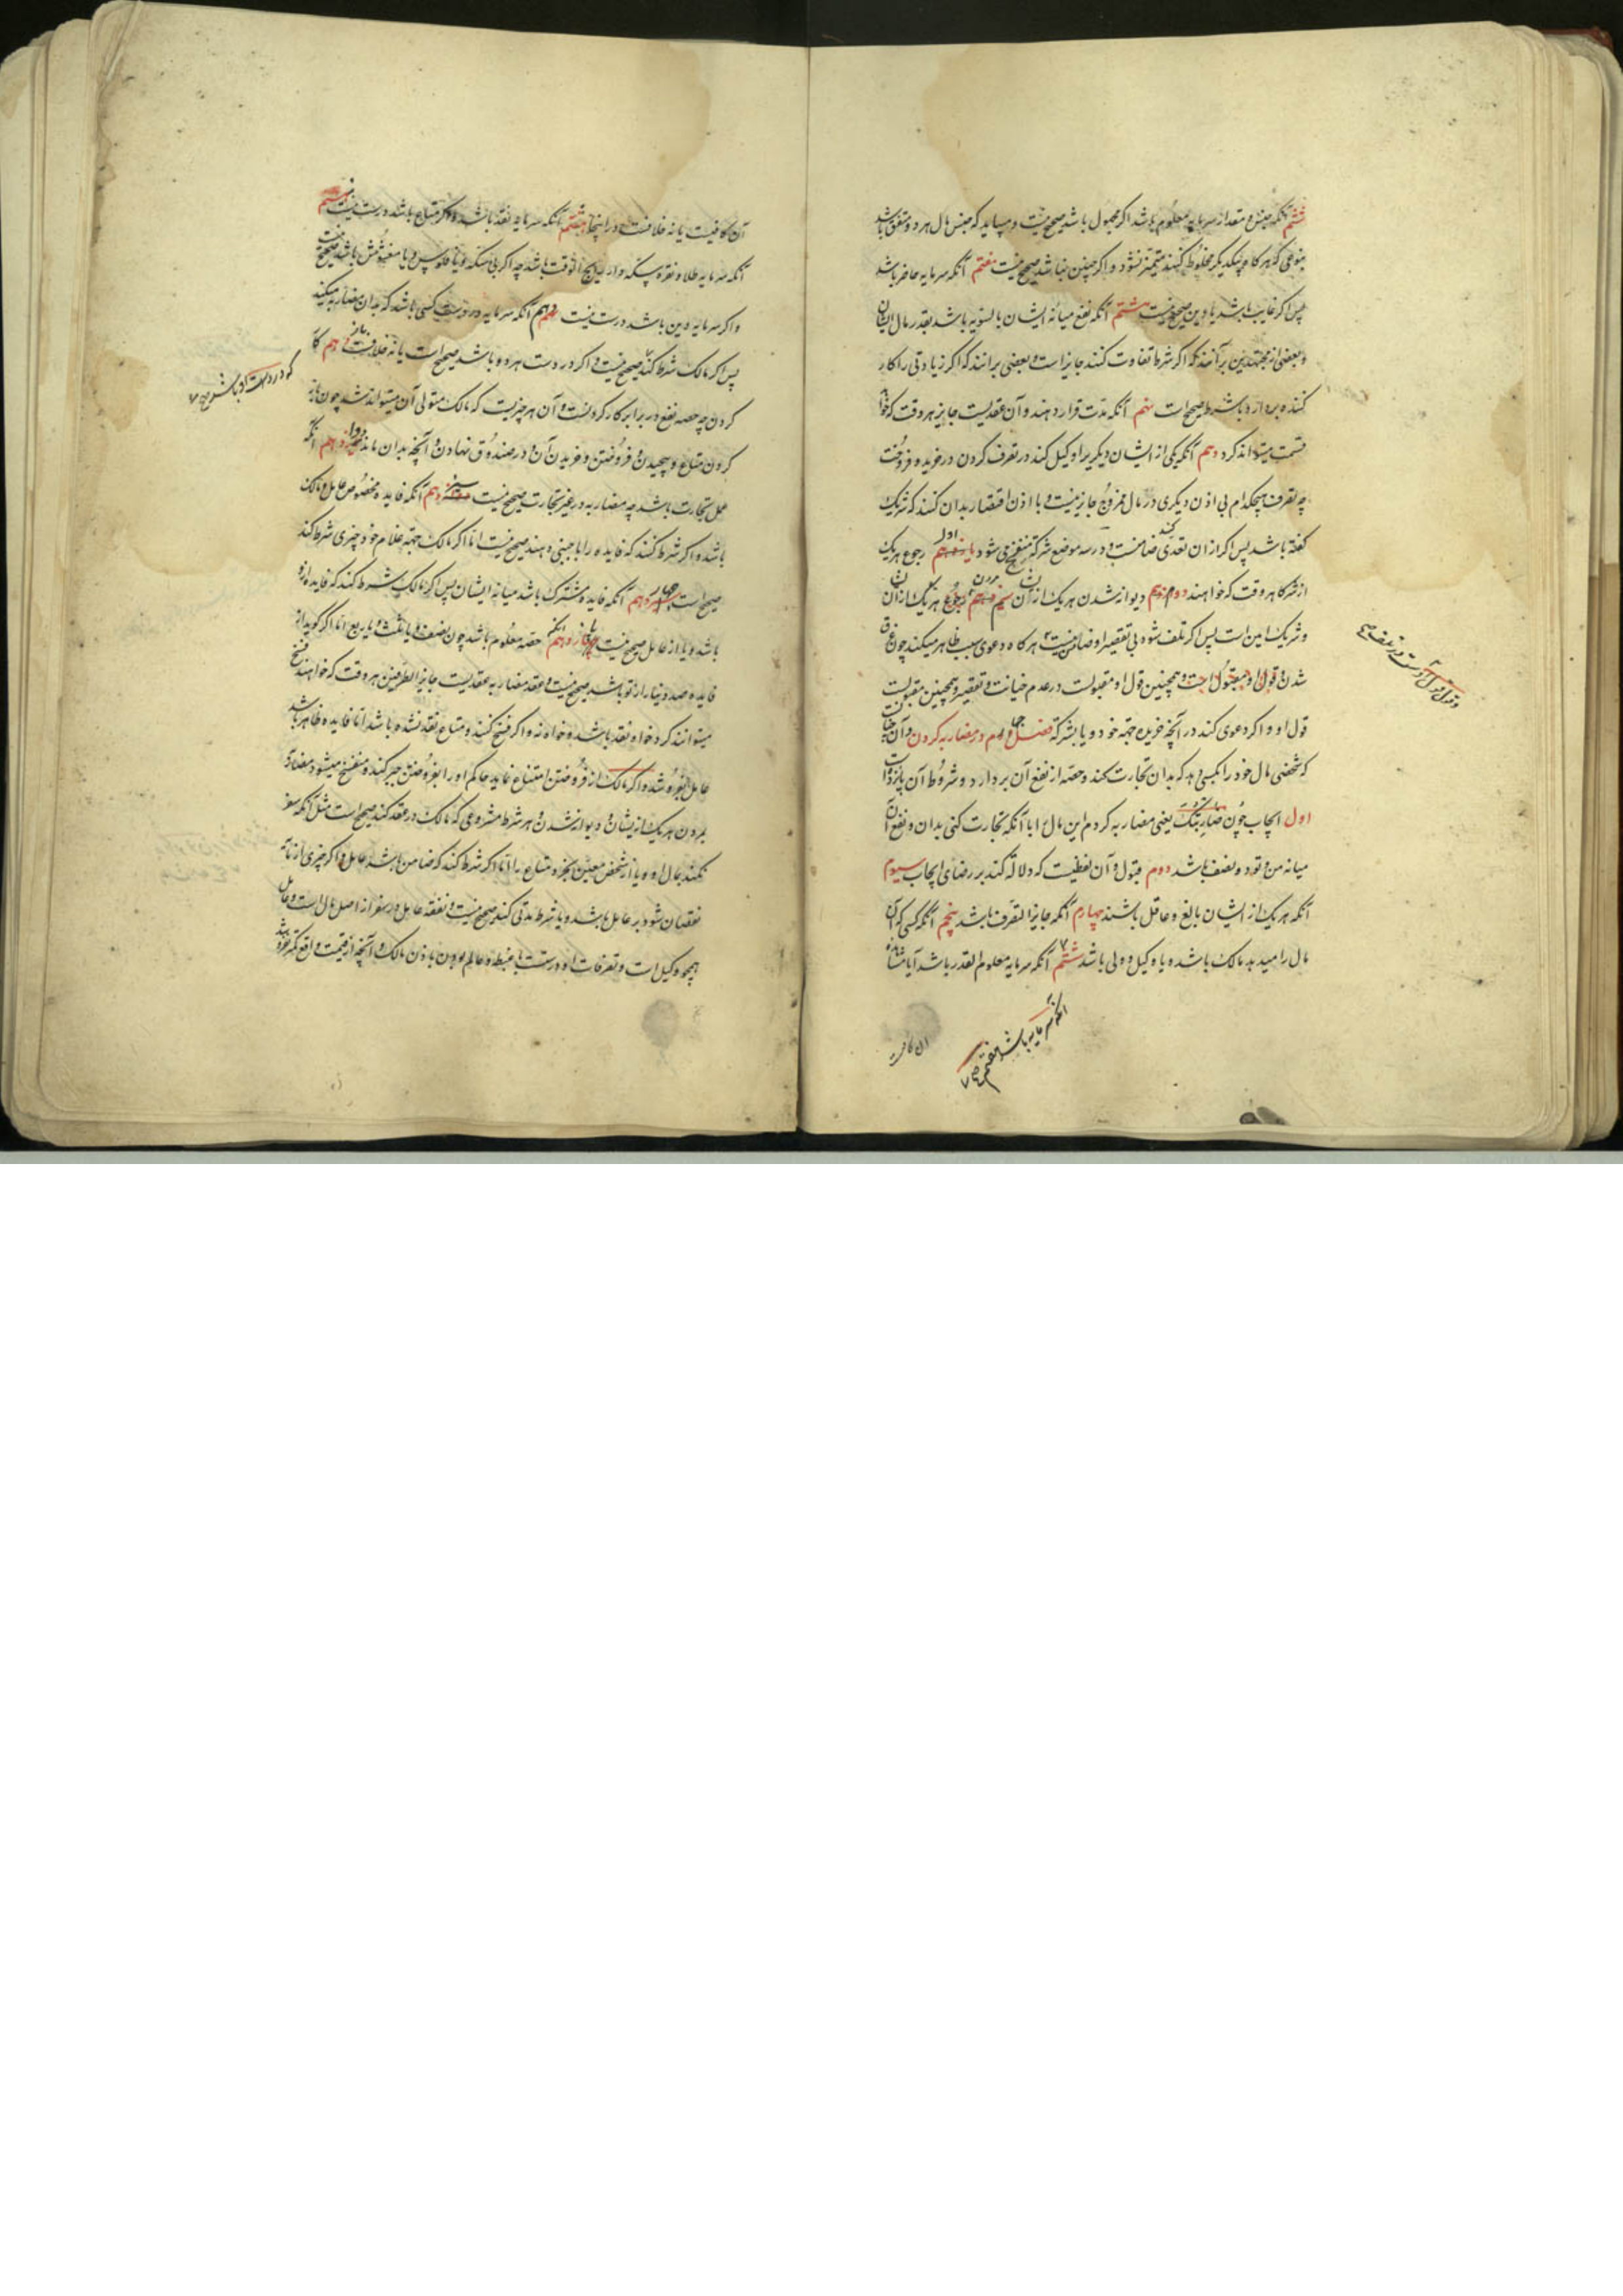 ششم آنکه جنس و مقدار سرمایه معلوم باشد اکر مجهول باشد صحیح نیست و میباید که جنس مال هر دو متفق باشد
بنوعی که هرکاه بیکدیکر مخلوط کنند متمیز نشود و اکر چنین نباشد صحیح نیست هفتم آنکه سرمایه حاضر باشد
پس اکر غایب باشد یا دین صحیح نیست هشتم آنکه نفع میانه ایشان بالسویه باشد بقدر مال ایشان
و بعضی از مجتهدین برآنند که اکر شرط تفاوت کنند جایز است و بعضی برانند که اکر زیادتی را کار
کننده بردارد باشرط صحیح است نهم آنکه مدت قرار ندهند و آن عقدیست جایز هر وقت که خواهند
قسمت میتواند کرد دهم آنکه یکی از ایشان دیکری را وکیل کند در تصرف کردن در خرید و فروخت
چه تصرف هیچکدام بی اذن دیکری در مال ممزوج جایز نیست و با اذن اقتصار بدان کنند که شریک
کفته باشد پس اکر از ان تعدی کند ضامنست و در سه موضع شرکة منفسخ می شود اول رجوع هریک
از شرکا هر وقت که خواهند دوم دیوانه شدن هریک از ان سیم مردن هریک از ان
و شریک امین است پس اکر تلف شود بی تقصیر او ضامن نیست هرکاه دعوی سبب ظاهر میکند چون غرق
شدن قول او مقبول است و همچنین قول او مقبولست در عدم خیانت و تقصیر و همچنین مقبولست
قول او و اکر دعوی کند در آنچه خریده جهة خود و یا بشرکة فصل چهارم در مضاربه کردن و آن چنانست
که شخصی مال خود را بکسی دهد که بدان تجارت کند و حصه از نفع آن بردارد و شروط آن پانزده است
اول ایجاب چون ضاربتک یعنی مضاربه کردم این مال را با آنکه تجارت کنی بدان و نفع آن
میانه من و تو دو نصف باشد دوم قبول و آن لفظیست که دلالة کند بر رضای ایجاب سیوم
آنکه هریک از ایشان بالغ و عاقل باشند چهارم آنکه جایز التصرف باشد پنجم آنکه کسی که آن
مال را میدهد مالک باشد و یا وکیل و ولی باشد ششم آنکه سرمایه معلوم القدر باشد آیا مشاهده
آن کافیست
آن کافیست یا نه خلافست در اینجا هشتم آنکه سرمایه نقد باشد و اکر متاع باشد درست نیست نهم
آنکه سرمایه طلا و نقره سکه دار رایج الوقت باشد چه اکر بی سکه و یا فلوس و یا مغشوش باشد صحیح نیست
و اکر سرمایه دین باشد درست نیست دهم آنکه سرمایه در دست کسی باشد که بدان مضاربه میکند
پس اکر مالک شرط کند صحیح نیست و اکر در دست هر دو باشد صحیح است یا نه خلافست یازدهم کار
که در دست او باشد صح
کردن چه حصه نفع در برابر کار کردنست و آن هر چیزیست که مالک متولی آن میتواند شد چون باز
کردن متاع و پیچیدن و فروختن و خریدن آن و در صندوق نهادن و آنچه بدان ماند دوازدهم آنکه
عمل تجارت باشد چه مضاربه در غیر تجارت صحیح نیست سیزدهم آنکه فایده مخصوص عامل و مالک
باشد و اکر شرط کنند که فایده را باجنبی دهند صحیح نیست اما اکر مالک جهة غلام خود چیزی شرط کند
صحیح است چهاردهم آنکه فایده مشترک باشد میانه ایشان پس اکر مالک شرط کند که فایده از و
باشد و یا از عامل صحیح نیست پانزدهم آنکه حصه معلوم باشد چون نصف و یا ثلث و یا ربع اما اکر کوید از
فایده صد دینار از تو باشد صحیح نیست و عقد مضاربه عقدیست جایز الطرفین هر وقت که خواهند فسخ
میتوانند کرد خواه نقد باشد و خواه نه و اکر فسخ کنند و متاع نقد نشده باشد اما فایده ظاهر باشد
عامل بفروشد و اکر مالک از فروختن امتناع نماید حاکم او را بفروختن جبر کند و منفسخ میشود مضاربة
بمردن هریک از یشان و دیوانه شدن و هر شرط مشروعی که مالک در عقد کند صحیح است مثل آنکه سفر
نکند بمال او و یا از شخص معین بخرد متاع را اما اکر شرط کند که ضامن باشد عامل و اکر چیزی از مال
نقصان شود بر عامل باشد و یا شرط مدتی کند صحیح نیست و نفقه عامل در سفر از اصل مال است و عامل
همچو وکیل است و تصرفات او درست با غبطه و عالم بودن باذن مالک و آنچه از قیمت واقع کمتر فروشد